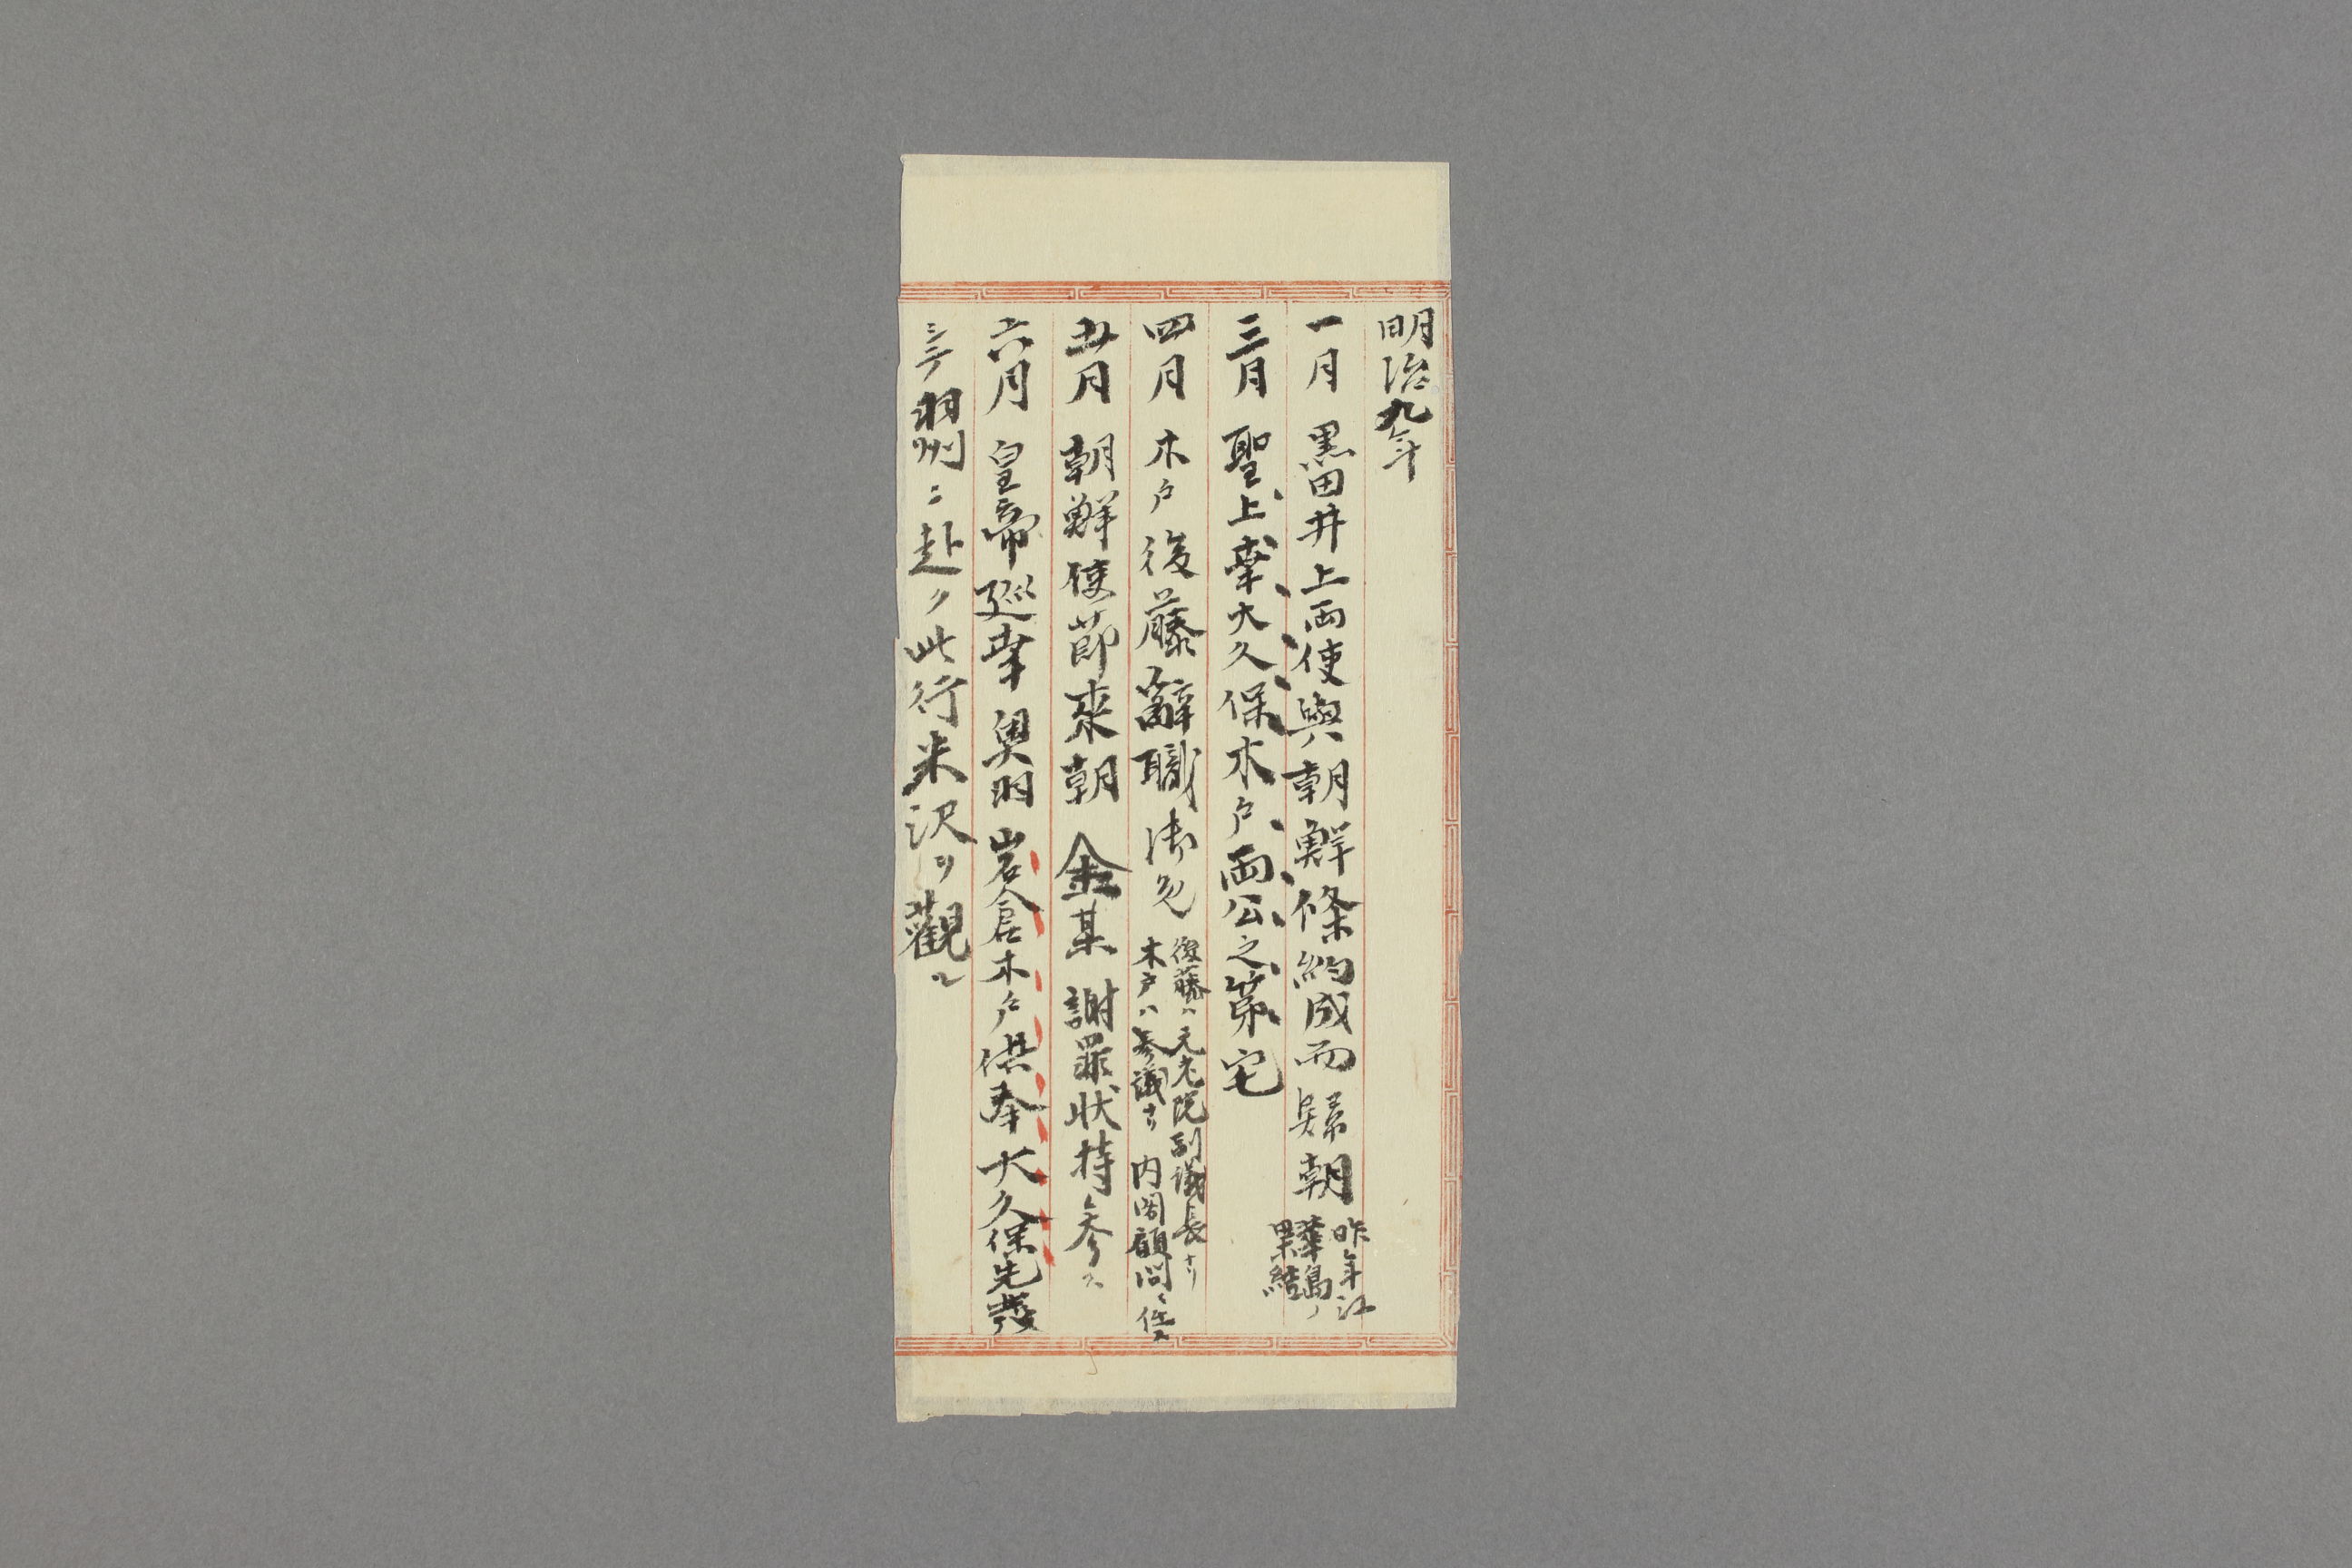 明治九年
一月 黒田井上両使與朝鮮條約成而歸朝 昨年江
華島ノ
果結
三月 聖上幸大久保木戸両公之第宅
四月 木戸後藤辭職御免 後藤ハ元老院副議長ナリ
木戸ハ参議ナリ 内閣顧問ニ任ス
五月 朝鮮使節来朝 金某 謝罪状持参ス
六月 皇帝巡幸 奥羽 岩倉木戸供奉大久保先發
シテ羽州ニ赴ク此行米沢ヲ觀ル